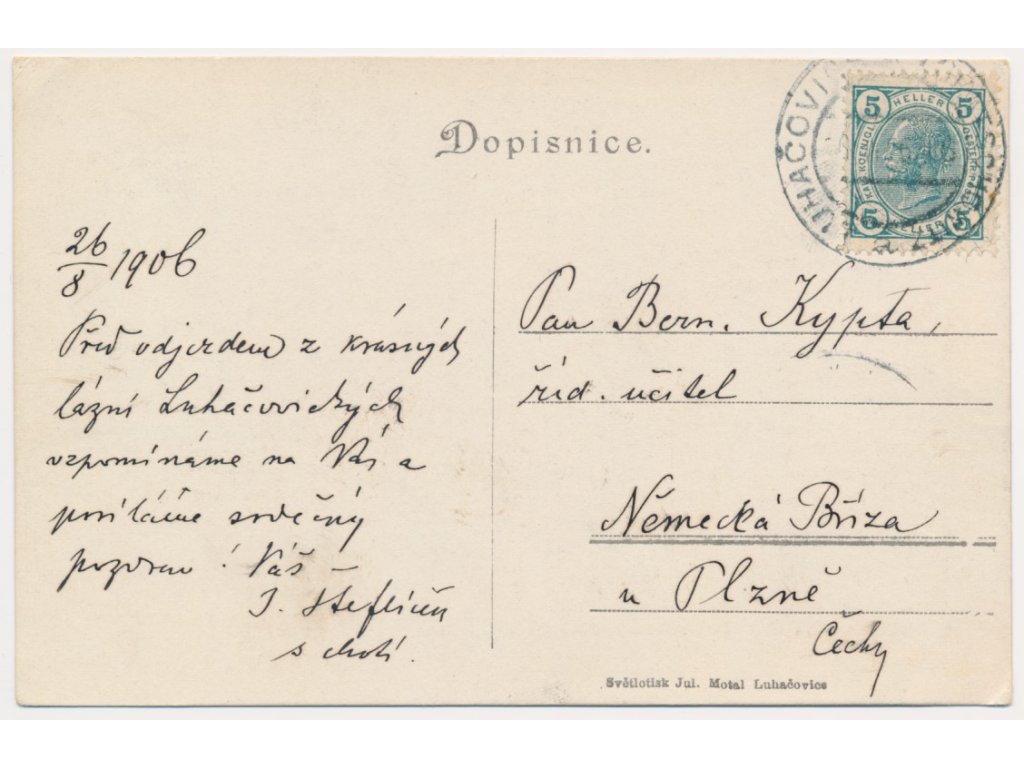 Dopisnice.
LUHAČOVIC
5 HELLER 5
5 HELLER 5
26/8 1906
Před odjezdem z krásných
lázní Luhačovických
vzpomínáme na Vás a
posíláme srdečný
pozdrav! Váš
J.
s chotí.
Pan Bern. Kypta,
říd. učitel
Německá Bříza
u Plzně
Čechy
Světlotisk Jul. Motal Luhačovice